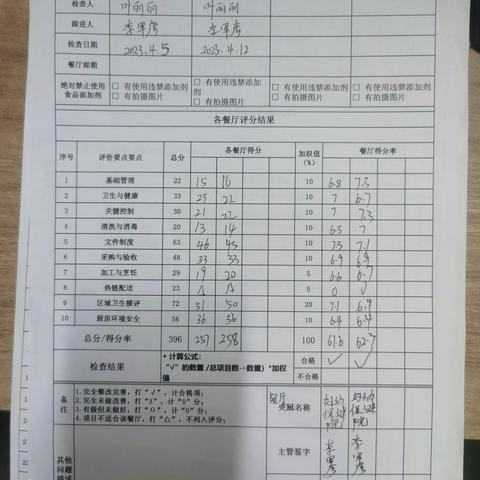 检查人 叶丽丽 叶丽丽
跟进人 李军彦 李军彦
检查日期 2023.4.5 2023.4.12
餐厅邮箱
绝对禁止使用食品添加剂 □ 有使用违禁添加剂 □ 有使用违禁添加剂 □ 有使用违禁添加剂
□ 有拍摄图片 □ 有拍摄图片 □ 有拍摄图片
各餐厅评分结果
序号 评价要点要点 总分 各餐厅得分 加权值(%) 餐厅得分率
1 基础管理 22 15 16 10 6.8 7.3
2 卫生与健康 33 23 22 10 7 6.7
3 关键控制 30 21 22 10 7 7.3
4 清洗与消毒 20 13 14 10 6.5 7
5 文件制度 63 46 45 10 7.3 7.1
6 采购与验收 48 33 33 10 6.9 6.9
7 加工与烹饪 29 19 20 5 6.6 6.7
8 热链配送 23 △ △ 5 0
9 区域卫生横评 72 51 50 20 7.1 6.9
10 厨房环境安全 56 36 36 10 6.4 6.4
总分/得分率 396 257 258 100 61.6 62.3
检查结果 * 计算公式: 合格 ✓ ✓
"√"的数量 /总项目数-△数量）*加权值 不合格
备注 1.完全整改完善，打"√"，计合格项；
2.完全未做改善，打"X"，计"0"分；
3.有做但未做好，打"O"，计"0"分；
4.项目不适合该餐厅，打"△"，不列入评分；
餐厅
班名称
主管签字 李军彦 李军彦
其他问题描述